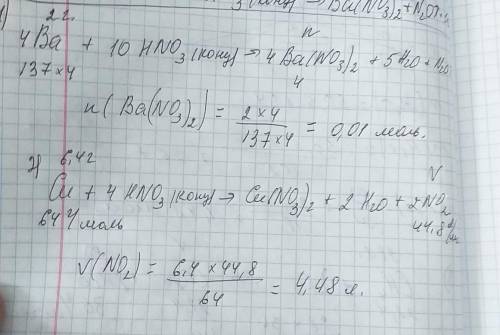 (конц) → Ba(NO3)2 + N2O +
1) 2 г. n
4 Ba + 10 HNO3 (конц) → 4 Ba(NO3)2 + 5 H2O + N2O
137×4 4
n ( Ba(NO3)2 ) = 2×4 / 137×4 = 0,01 моль.
2) 6,4 г V
Cu + 4 HNO3 (конц) → Cu(NO3)2 + 2 H2O + 2 NO2
64 Ч моль 44,8
V (NO2) = 6,4 × 44,8 / 64 = 4,48 л.